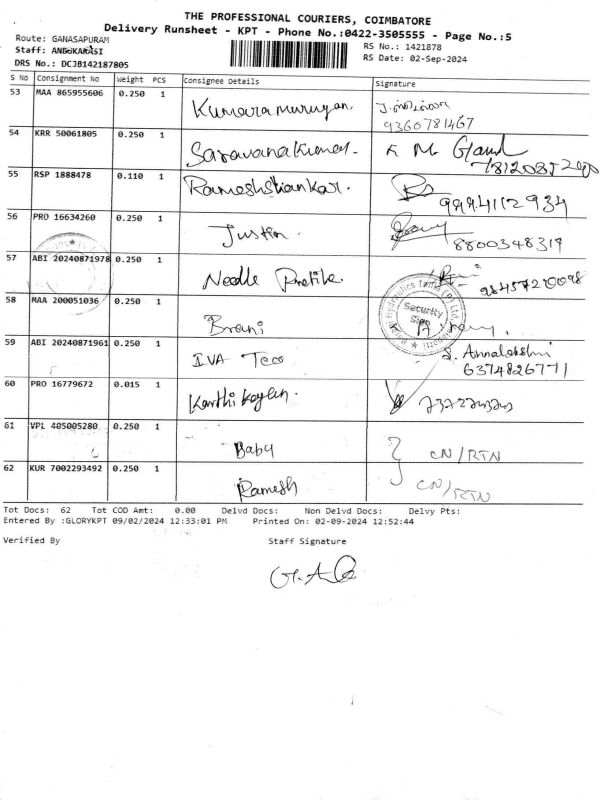 THE PROFESSIONAL COURIERS, COIMBATORE
Delivery Runsheet - KPT - Phone No.:0422-3505555 - Page No.:5
Route: GANASAPURAM
Staff: ANBUKARASI
RS No.: 1421878
DRS No.: DCJB142187805
RS Date: 02-Sep-2024
S No Consignment No Weight PCS Consignee Details Signature
53 MAA 865955606 0.250 1 Kumaramurugan.
9360781467
54 KRR 50061805 0.250 1 Saravanakumar. K M
55 RSP 1888478 0.110 1 Rameshshankar.
9994112934
56 PRO 16634260 0.250 1 Justin.
8800348319
57 ABI 20240871978 0.250 1 Needle
9845720098
58 MAA 200051036 0.250 1 Brani
Security
Sign
59 ABI 20240871961 0.250 1 IVA Teco
6374826771
60 PRO 16779672 0.015 1
61 VPL 405005280 0.250 1 Babu CN/RTN
62 KUR 7002293492 0.250 1 Ramesh CN/RTN
Tot Docs: 62 Tot COD Amt: 0.00 Delvd Docs: Non Delvd Docs: Delvy Pts:
Entered By :GLORYKPT 09/02/2024 12:33:01 PM Printed On: 02-09-2024 12:52:44
Verified By Staff Signature